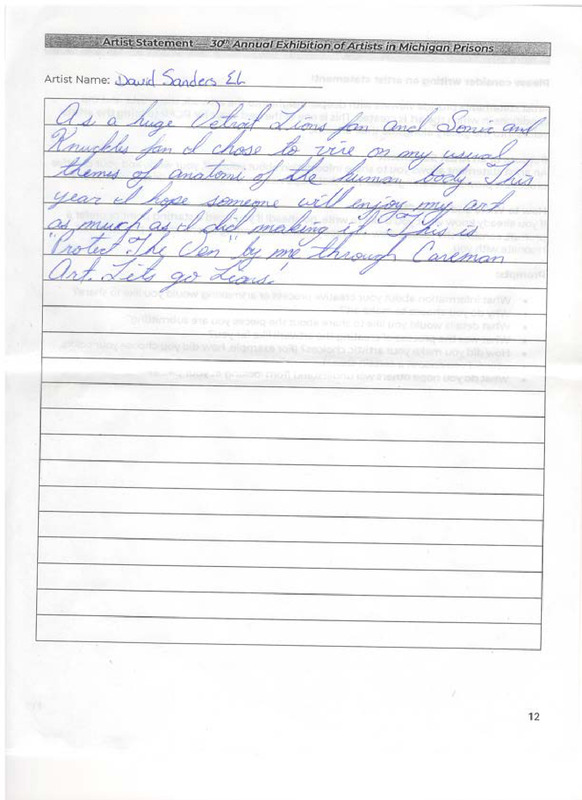 Artist Statement — 30th Annual Exhibition of Artists in Michigan Prisons
Artist Name: David Sanders El
As a huge Detroit Lions fan and Sonic and
Knuckles fan I chose to vire on my usual
themes of anatomi of the human body. This
year I hope someone will enjoy my art
as much as I did making it. This is
"Protect The Den" by me through Caneman
Art. Lets go Lions!
12